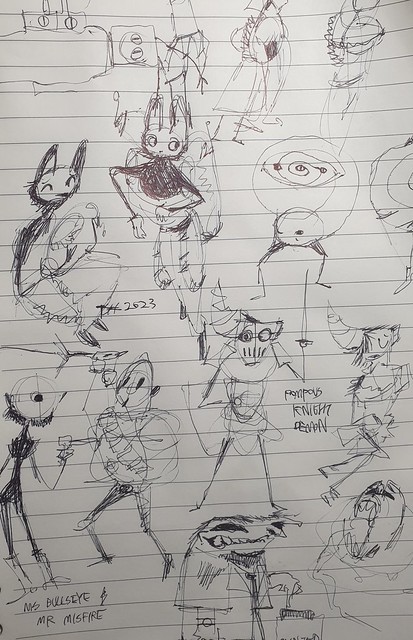 2023
POMPOUS
KNIGHT
DEMON
MS BULLSEYE &
MR MISFIRE